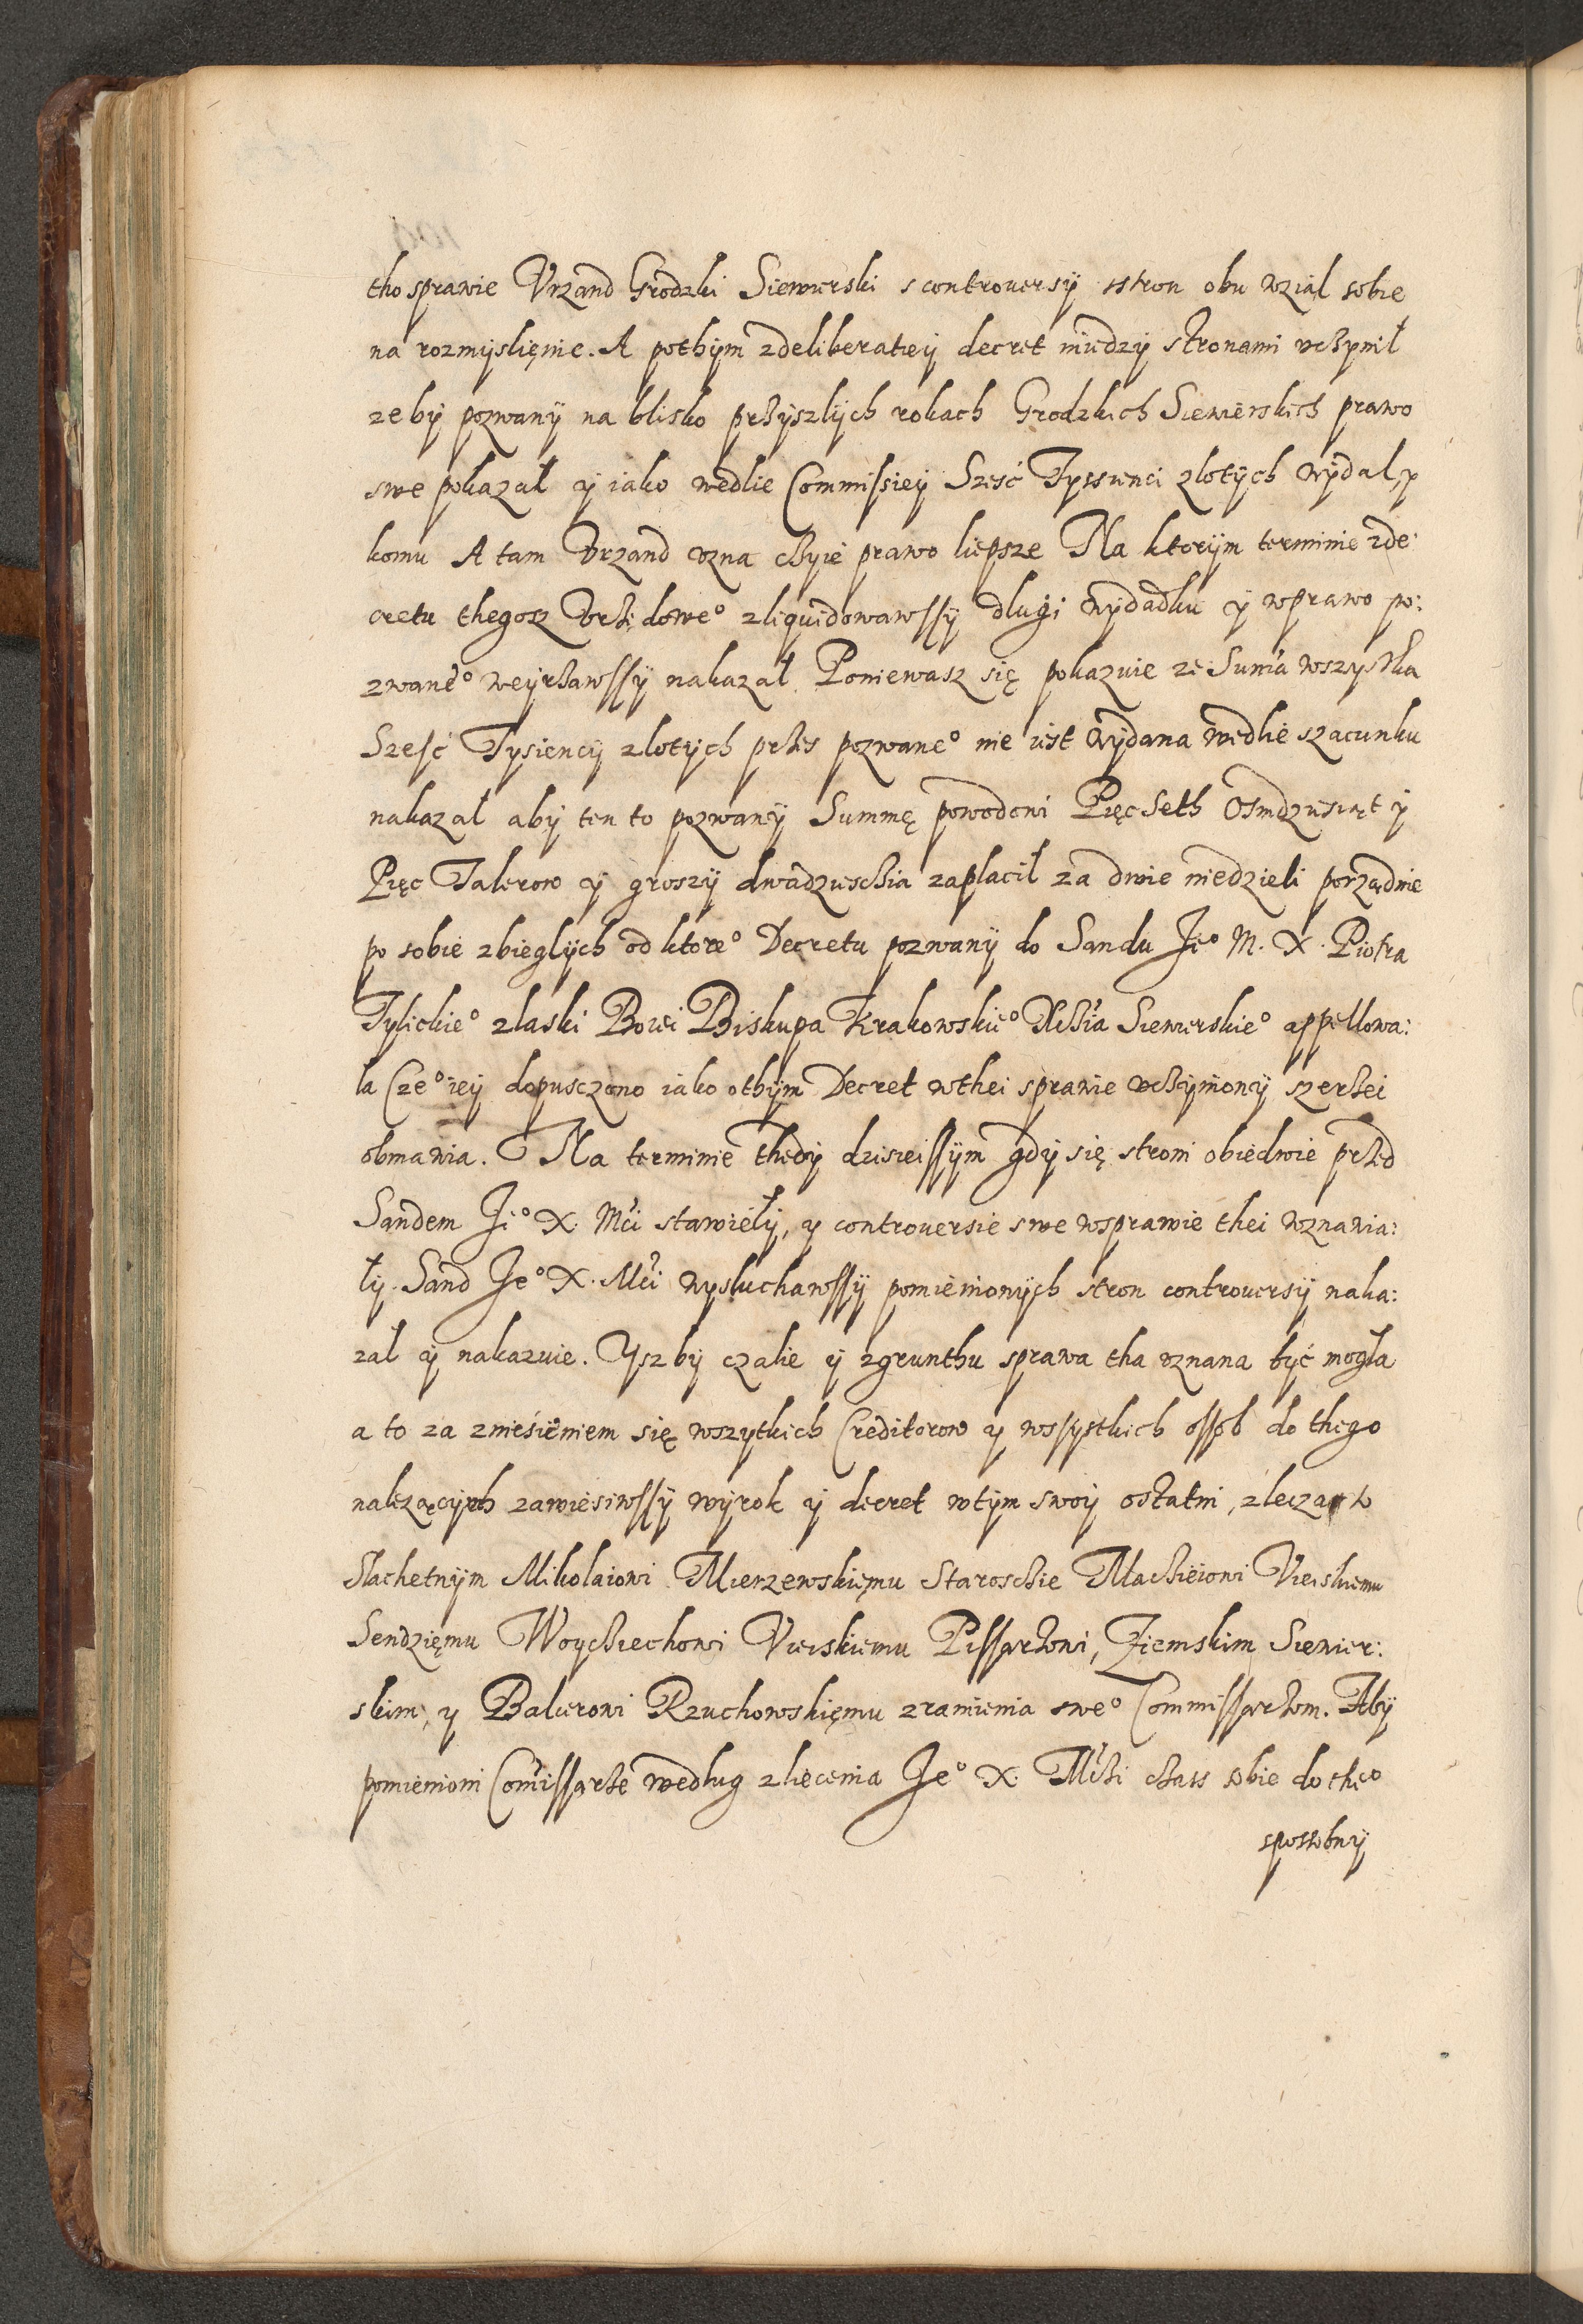 tho sprawie Vrzand Grodzki Siewierski s controuersÿ sstron obu wział sobie
na rozmyslięnie. A pothÿm zdeliberatiey decret miedzÿ stronami vcżÿnił
ze bÿ pozwanÿ na blisko prżÿszlÿch rokach Grodzkich Siewierskich prawo
swe pokazał ÿ iako wedlie Commissieÿ Sześć Tyssienci zlotÿch wÿdal, ÿ
komu A tam Vrzand vzna cżÿie prawo liepsze Na ktorÿm terminie zde:
cretu thegosz Vrżędoweº zliquidowawssÿ dlugi wÿdadku ÿ wprawo po:
zwaneº weÿrżawssÿ nakazał Poniewasz się pokazuie ze Suma̅ wszystka
Sześć Tysiencÿ zlotÿch przes pozwaneº nie iest wÿdana wedlie szacunku
nakazał abÿ ten to pozwanÿ Summę powodowi Pięc Seth Osmdziesiąt ÿ
Pięc Talerow ÿ groszÿ dwadziescżia zaplacił za dwie niedzieli porządnie
po sobie zbieglÿch od ktoreº Decretu pozwanÿ do Sandu Jeº M. X. Piotra
Tylickieº zlaski Bożei Biskupa Krakowskieº Xcżia Siewierskieº appellowa:
la Czeº ieÿ dopusczono iako othÿm Decret wthei sprawie vcżÿnionÿ szerżei
obmawia. Na terminie thedÿ dzisieissÿm gdÿ się stroni obiedwie przed
Sandem Jeº X. Mci stawiełÿ, y controuersie swe wsprawie thei wznawia:
łÿ. Sand Jeº X. Mci wysluchawssÿ pomienionÿch stron controuersÿ naka:
zał ÿ nakazuie. Ysz bÿ czalie ÿ zgrunthu sprawa tha vznana być mogła
a to za zniesieniem się wszytkich Creditorow y wssystkich ossob do thego
nalezączÿch zawiesiwssÿ wÿrok ÿ decret wtÿm swoÿ ostatni, zlecza to
Slachetnÿm Mikolaiowi Mierzewskięmu Staroscżie Macżieiowi Vieiskiemu
Sendzięmu Woycżiechowi Vieiskiemu Pissarżowi, Ziemskim Siewier:
skim, y Balcerowi Rzuchowskięmu zramienia sweº Commissarżom. Abÿ
pomienioni Comissarże według zliecenia Jeº X. Mcżi cżass sobie do theº
sposobnÿ